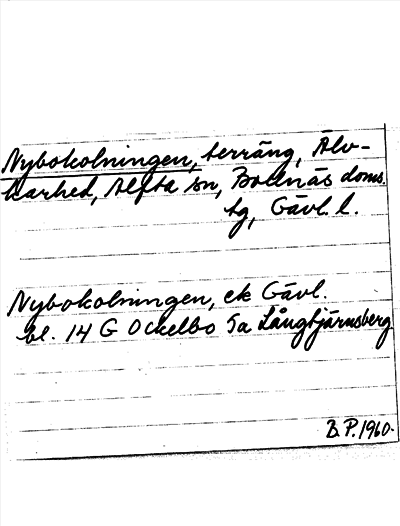 Nybokolningen, terräng, Älv-
karhed, Alfta sn, Bollnäs doms.
tg, Gävl. l.
Nybokolningen, ek Gävl.
bl. 14 G Ockelbo 5a Långtjärnsberg
B.P. 1960.